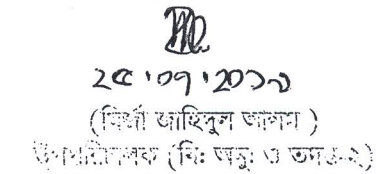 ২৫.০৭.২০১৯
(মির্জা জাহিদুল আলম)
উপপরিচালক (বি: অনু: ও তদন্ত-২)